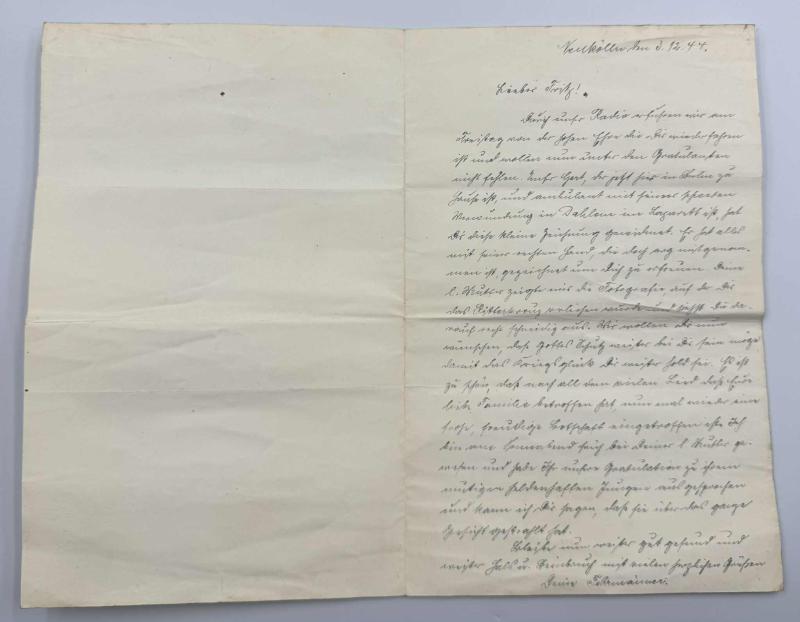 Neukölln den 3.12.44.
Lieber Fritz!
Durch unser Radio erfuhren wir am
Freitag von der hohen Ehre die Dir wiederfahren
ist und wollen nun unter den Gratulanten
nicht fehlen. Unser Gert, der jetzt hier in Berlin zu
Hause ist, und ambulant mit seiner schweren
Verwundung in Dahlem im Lazarett ist, hat
Dir diese kleine Zeichnung gezeichnet. Er hat alles
mit seiner rechten Hand, die doch arg mitgenom-
men ist, gezeichnet um Dich zu erfreuen. Deine
l. Mutter zeigte mir die Fotografie auf der Dir
das Ritterkreuz verliehen wurde und siehst Du da-
rauch recht schneidig aus. Wir wollen Dir nun
wünschen, daß Gottes Schutz weiter bei Dir sein möge
damit das Kriegsglück Dir weiter hold sei. Es ist
zu schön, daß nach all dem vielen Leid daß Eure
liebe Familie betroffen hat, nun mal wieder eine
frohe, freudige Botschaft eingetroffen ist. Ich
bin am Sonnabend früh bei Deiner l. Mutter ge-
wesen und habe Ihr unsere Gratulation zu ihrem
mutigen heldenhaften Jungen ausgesprochen
und kann ich Dir sagen, daß sie über das ganze
Gesicht gestrahlt hat.
Bleibe nun weiter gut gesund und
weiter Hals u. Beinbruch mit vielen herzlichen Grüßen
Deine